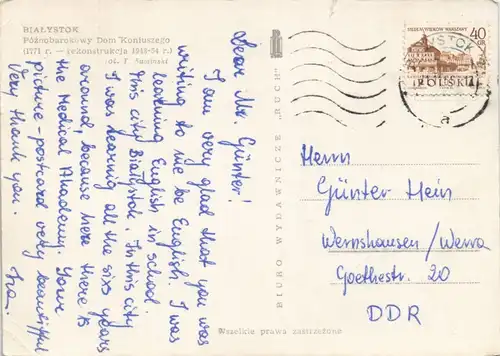 BIAŁYSTOK
Późnobarokowy Dom Koniuszego
(1771 r. — rekonstrukcja 1949-54 r.)
fot. T. Sumiński
Dear Mr. Günter!
I am very glad that you was
writing to me be English. I was
learning English in school.
This city Białystok. In this city
I was learning all the six years
around, because here there is
the Medical Akademy. Your
picture-postcard very beautifful
Very thank you.
BIURO WYDAWNICZE „RUCH”
SIEDEM WIEKÓW WARSZAWY
40
GR
POLSKA
a
Herrn
Günter Hein
Wernshausen/Werra
Goethestr. 20
DDR
Wszelkie prawa zastrzeżone